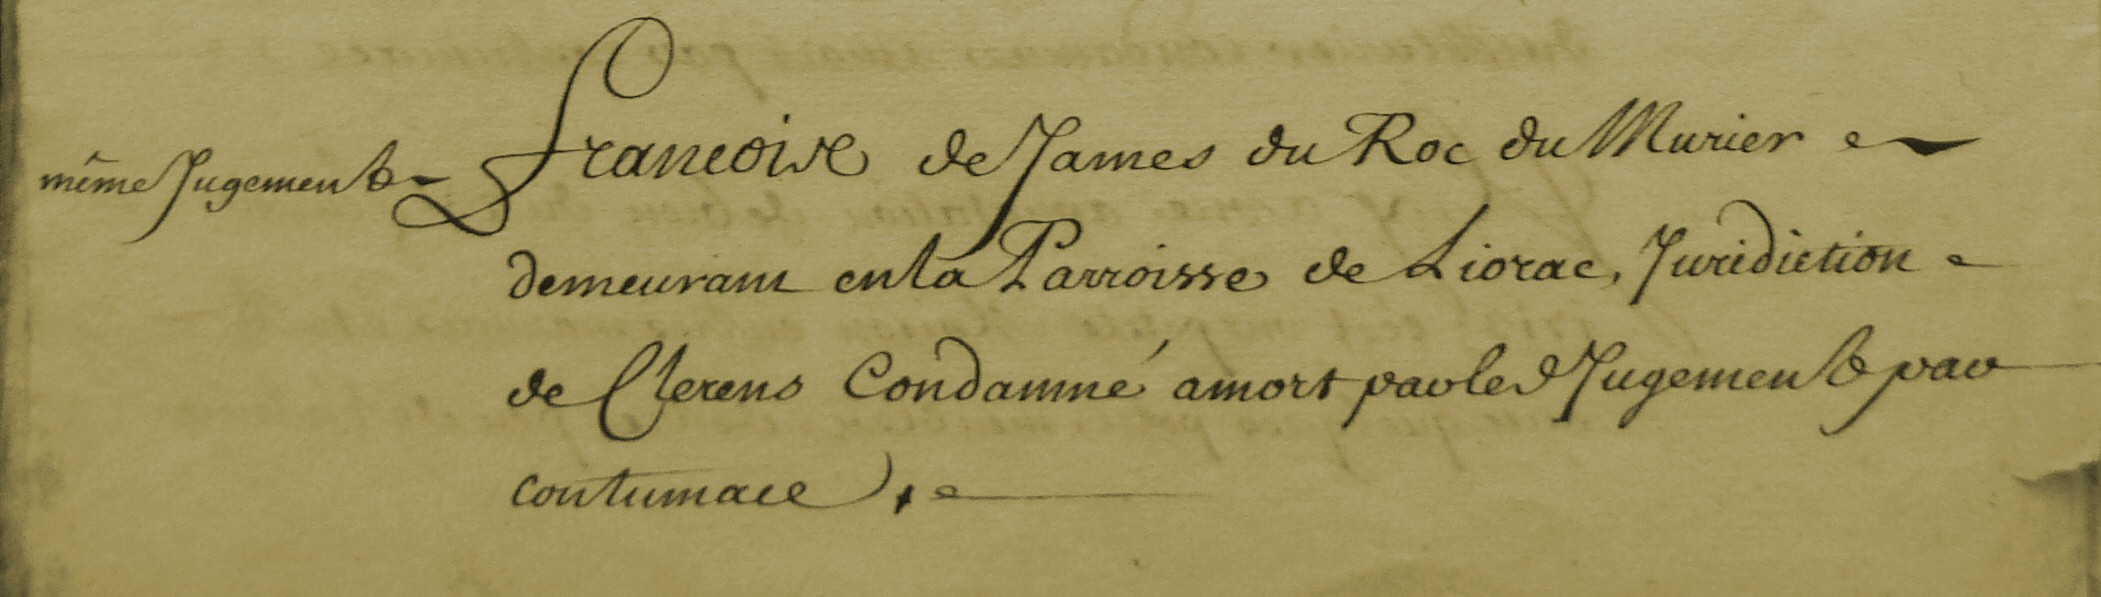 même Jugement Francoise de James du Roc du Murier
demeurant en la Parroisse de Liorac, Juridiction
de Clerens Condamné a mort par led Jugement par
contumace ,